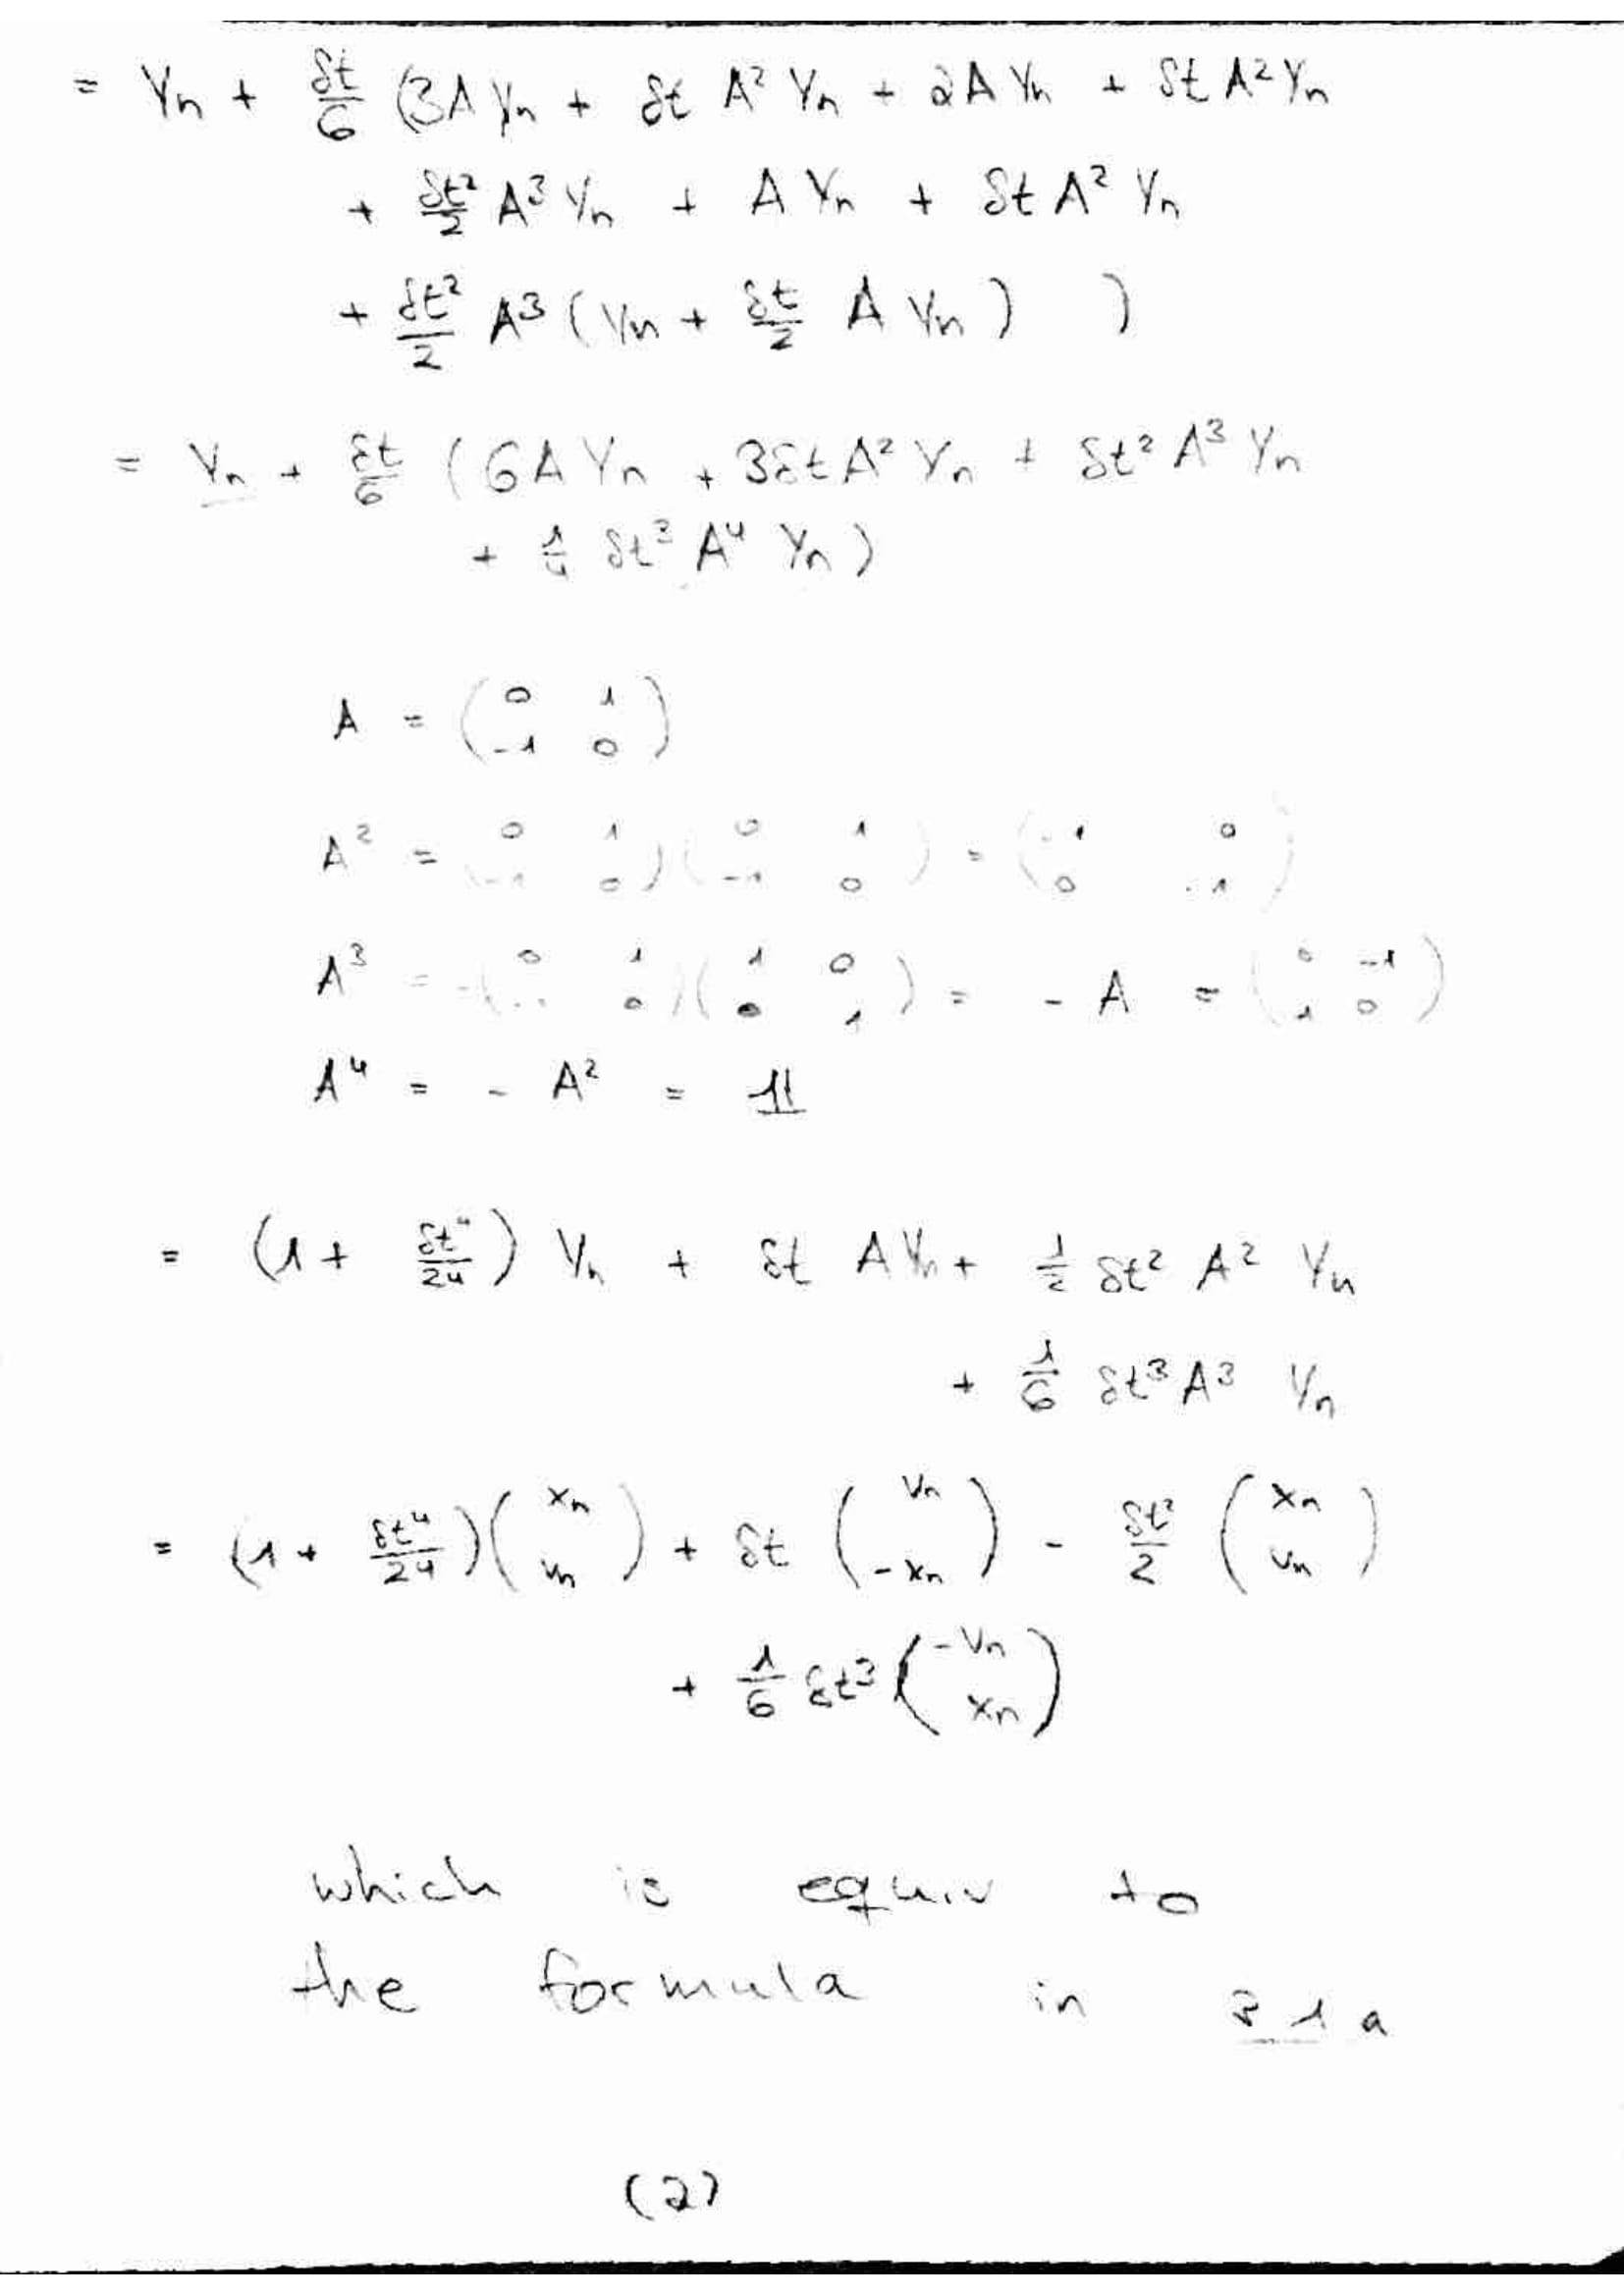 = Yn + δt/6 (3A Yn + δt A² Yn + 2A Yn + δt A² Yn
+ δt²/2 A³ Yn + A Yn + δt A² Yn
+ δt²/2 A³ ( Yn + δt/2 A Yn ) )
= Yn + δt/6 ( 6A Yn + 3δt A² Yn + δt² A³ Yn
+ 1/4 δt³ A⁴ Yn )
A = ( 0 1 ; -1 0 )
A² = ( 0 1 ; -1 0 ) ( 0 1 ; -1 0 ) = ( -1 0 ; 0 -1 )
A³ = - ( 0 1 ; -1 0 ) ( 1 0 ; 0 1 ) = - A = ( 0 -1 ; 1 0 )
A⁴ = - A² = 𝟙
= ( 1 + δt⁴/24 ) Yn + δt A Yn + 1/2 δt² A² Yn
+ 1/6 δt³ A³ Yn
= ( 1 + δt⁴/24 ) ( xn ; vn ) + δt ( vn ; -xn ) - δt²/2 ( xn ; vn )
+ 1/6 δt³ ( -vn ; xn )
which is equiv to
the formula in 3 1 a
(2)